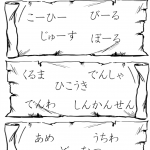 こーひー　びーる
じゅーす　ぼーる
くるま　でんしゃ
ひこうき
でんわ　しんかんせん
あめ　うちわ